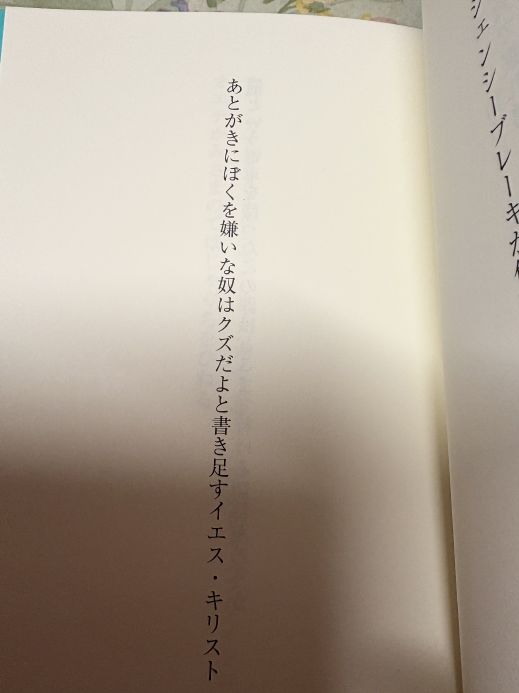 ジェンシーブレーキが
あとがきにぼくを嫌いな奴はクズだよと書き足すイエス・キリスト